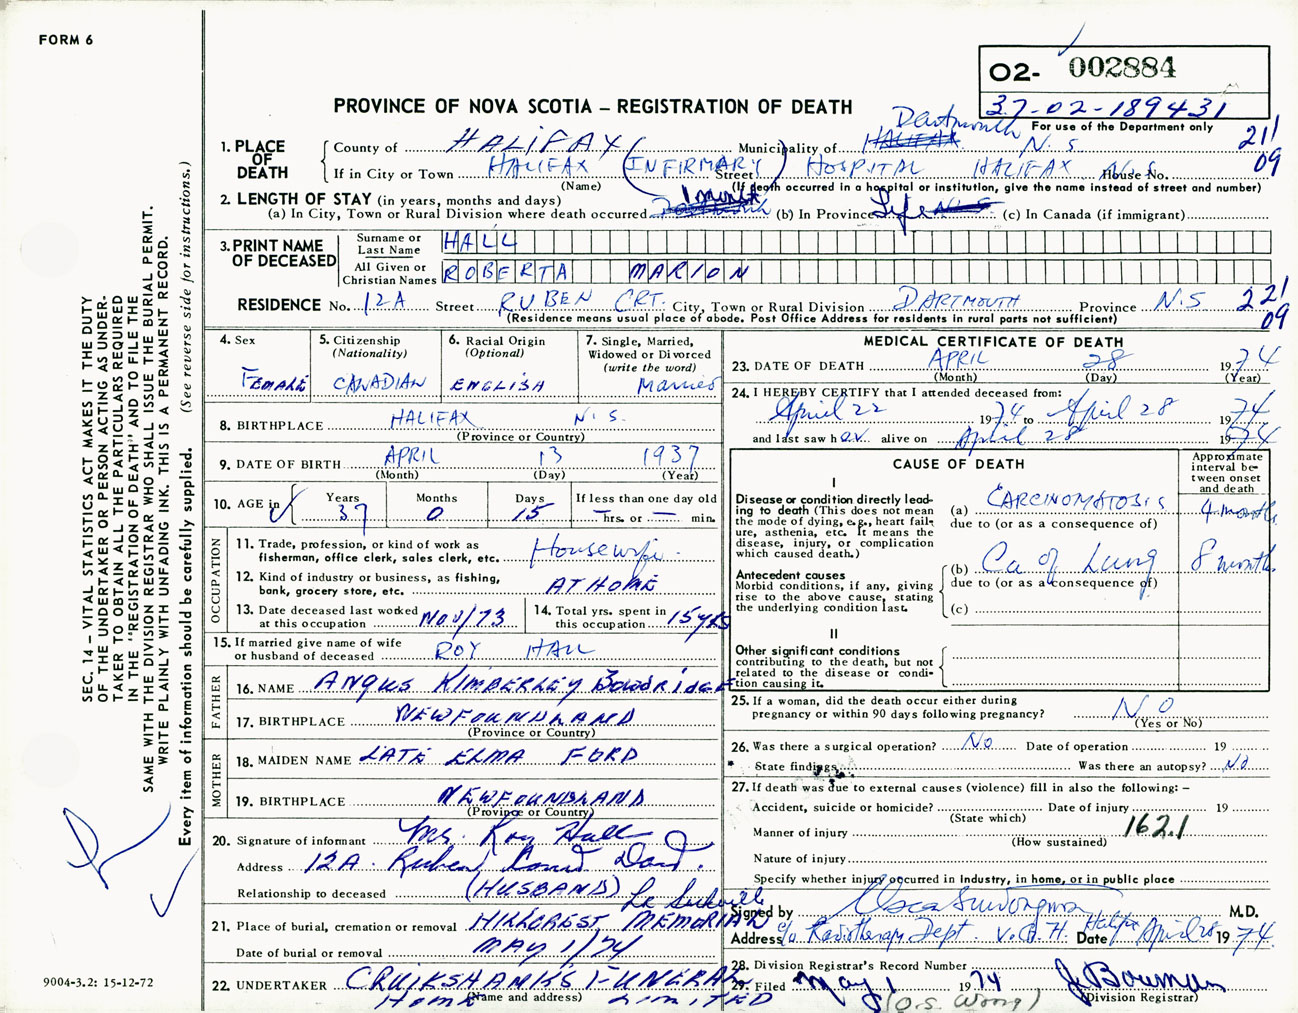 FORM 6
O2- 002884
37-02-189431
For use of the Department only
PROVINCE OF NOVA SCOTIA – REGISTRATION OF DEATH
211
09
1. PLACE OF DEATH
County of HALIFAX Municipality of HALIFAX Dartmouth N.S
If in City or Town HALIFAX (INFIRMARY) Street HOSPITAL HALIFAX House No. N.S
(Name) (If death occurred in a hospital or institution, give the name instead of street and number)
2. LENGTH OF STAY (in years, months and days)
(a) In City, Town or Rural Division where death occurred 1 month (b) In Province Life N.S. (c) In Canada (if immigrant)
3. PRINT NAME OF DECEASED
Surname or Last Name HALL
All Given or Christian Names ROBERTA MARION
RESIDENCE No. 12A Street RUBEN CRT. City, Town or Rural Division DARTMOUTH Province N.S
(Residence means usual place of abode. Post Office Address for residents in rural parts not sufficient)
221
09
4. Sex
Female
5. Citizenship (Nationality)
CANADIAN
6. Racial Origin (Optional)
ENGLISH
7. Single, Married, Widowed or Divorced (write the word)
Married
8. BIRTHPLACE HALIFAX N.S.
(Province or Country)
9. DATE OF BIRTH APRIL 13 1937
(Month) (Day) (Year)
10. AGE in Years 37 Months 0 Days 15 If less than one day old — hrs. or — min.
OCCUPATION
11. Trade, profession, or kind of work as fisherman, office clerk, sales clerk, etc. Housewife
12. Kind of industry or business, as fishing, bank, grocery store, etc. AT HOME
13. Date deceased last worked at this occupation Nov/73
14. Total yrs. spent in this occupation 15 yrs
15. If married give name of wife or husband of deceased ROY HALL
FATHER
16. NAME ANGUS KIMBERLEY BOWDRIDGE
17. BIRTHPLACE NEWFOUNDLAND
(Province or Country)
MOTHER
18. MAIDEN NAME LATE ELMA FORD
19. BIRTHPLACE NEWFOUNDLAND
(Province or Country)
20. Signature of informant Mr. Roy Hall
Address 12A Ruben Court Dart.
Relationship to deceased (HUSBAND)
21. Place of burial, cremation or removal HILLCREST MEMORIAL Lr Sackville
Date of burial or removal MAY 1/74
22. UNDERTAKER CRUIKSHANK'S FUNERAL HOME LIMITED
(Name and address)
MEDICAL CERTIFICATE OF DEATH
23. DATE OF DEATH APRIL 28 1974
(Month) (Day) (Year)
24. I HEREBY CERTIFY that I attended deceased from:
April 22 1974 to April 28 1974
and last saw her alive on April 28 1974
CAUSE OF DEATH
Approximate interval between onset and death
I
Disease or condition directly leading to death (This does not mean the mode of dying, e.g., heart failure, asthenia, etc. It means the disease, injury, or complication which caused death.)
(a) CARCINOMATOSIS 4 months
due to (or as a consequence of)
Antecedent causes
Morbid conditions, if any, giving rise to the above cause, stating the underlying condition last.
(b) Ca of Lung 8 months
due to (or as a consequence of)
(c)
II
Other significant conditions
contributing to the death, but not related to the disease or condition causing it.
25. If a woman, did the death occur either during pregnancy or within 90 days following pregnancy? NO
(Yes or No)
26. Was there a surgical operation? No Date of operation 19
State findings Was there an autopsy? No
27. If death was due to external causes (violence) fill in also the following: –
Accident, suicide or homicide? Date of injury 19
(State which)
Manner of injury 162.1
(How sustained)
Nature of injury
Specify whether injury occurred in Industry, in home, or in public place
Signed by M.D.
Address c/o Radiotherapy Dept. V.G.H. Halifax Date April 28 1974
28. Division Registrar's Record Number
29. Filed May 1 1974 J Bowman
(O.S. Wong) (Division Registrar)
SEC. 14 – VITAL STATISTICS ACT MAKES IT THE DUTY
OF THE UNDERTAKER OR PERSON ACTING AS UNDER-
TAKER TO OBTAIN ALL THE PARTICULARS REQUIRED
IN THE "REGISTRATION OF DEATH" AND TO FILE THE
SAME WITH THE DIVISION REGISTRAR WHO SHALL ISSUE THE BURIAL PERMIT.
WRITE PLAINLY WITH UNFADING INK. THIS IS A PERMANENT RECORD.
Every item of information should be carefully supplied. (See reverse side for instructions.)
9004-3.2: 15-12-72